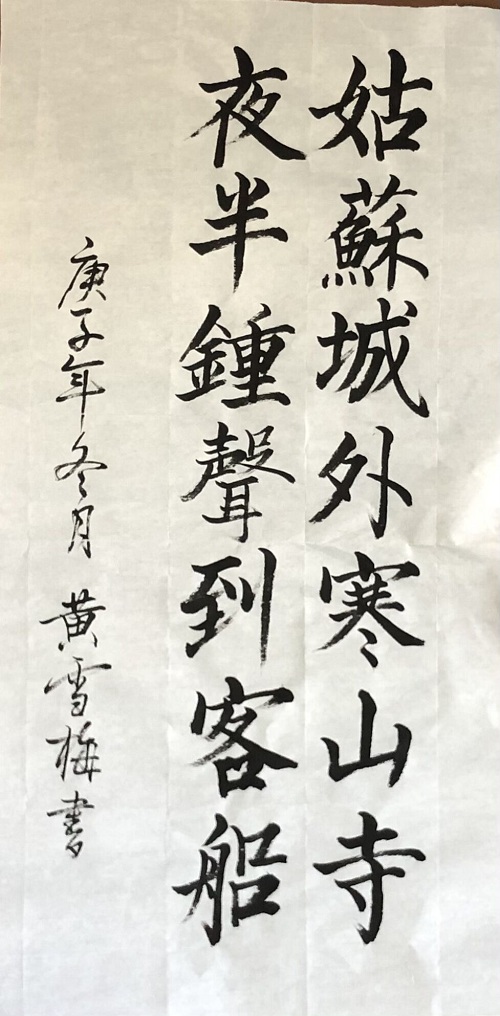 姑蘇城外寒山寺
夜半鍾聲到客船
庚子年冬月 黄雪梅書